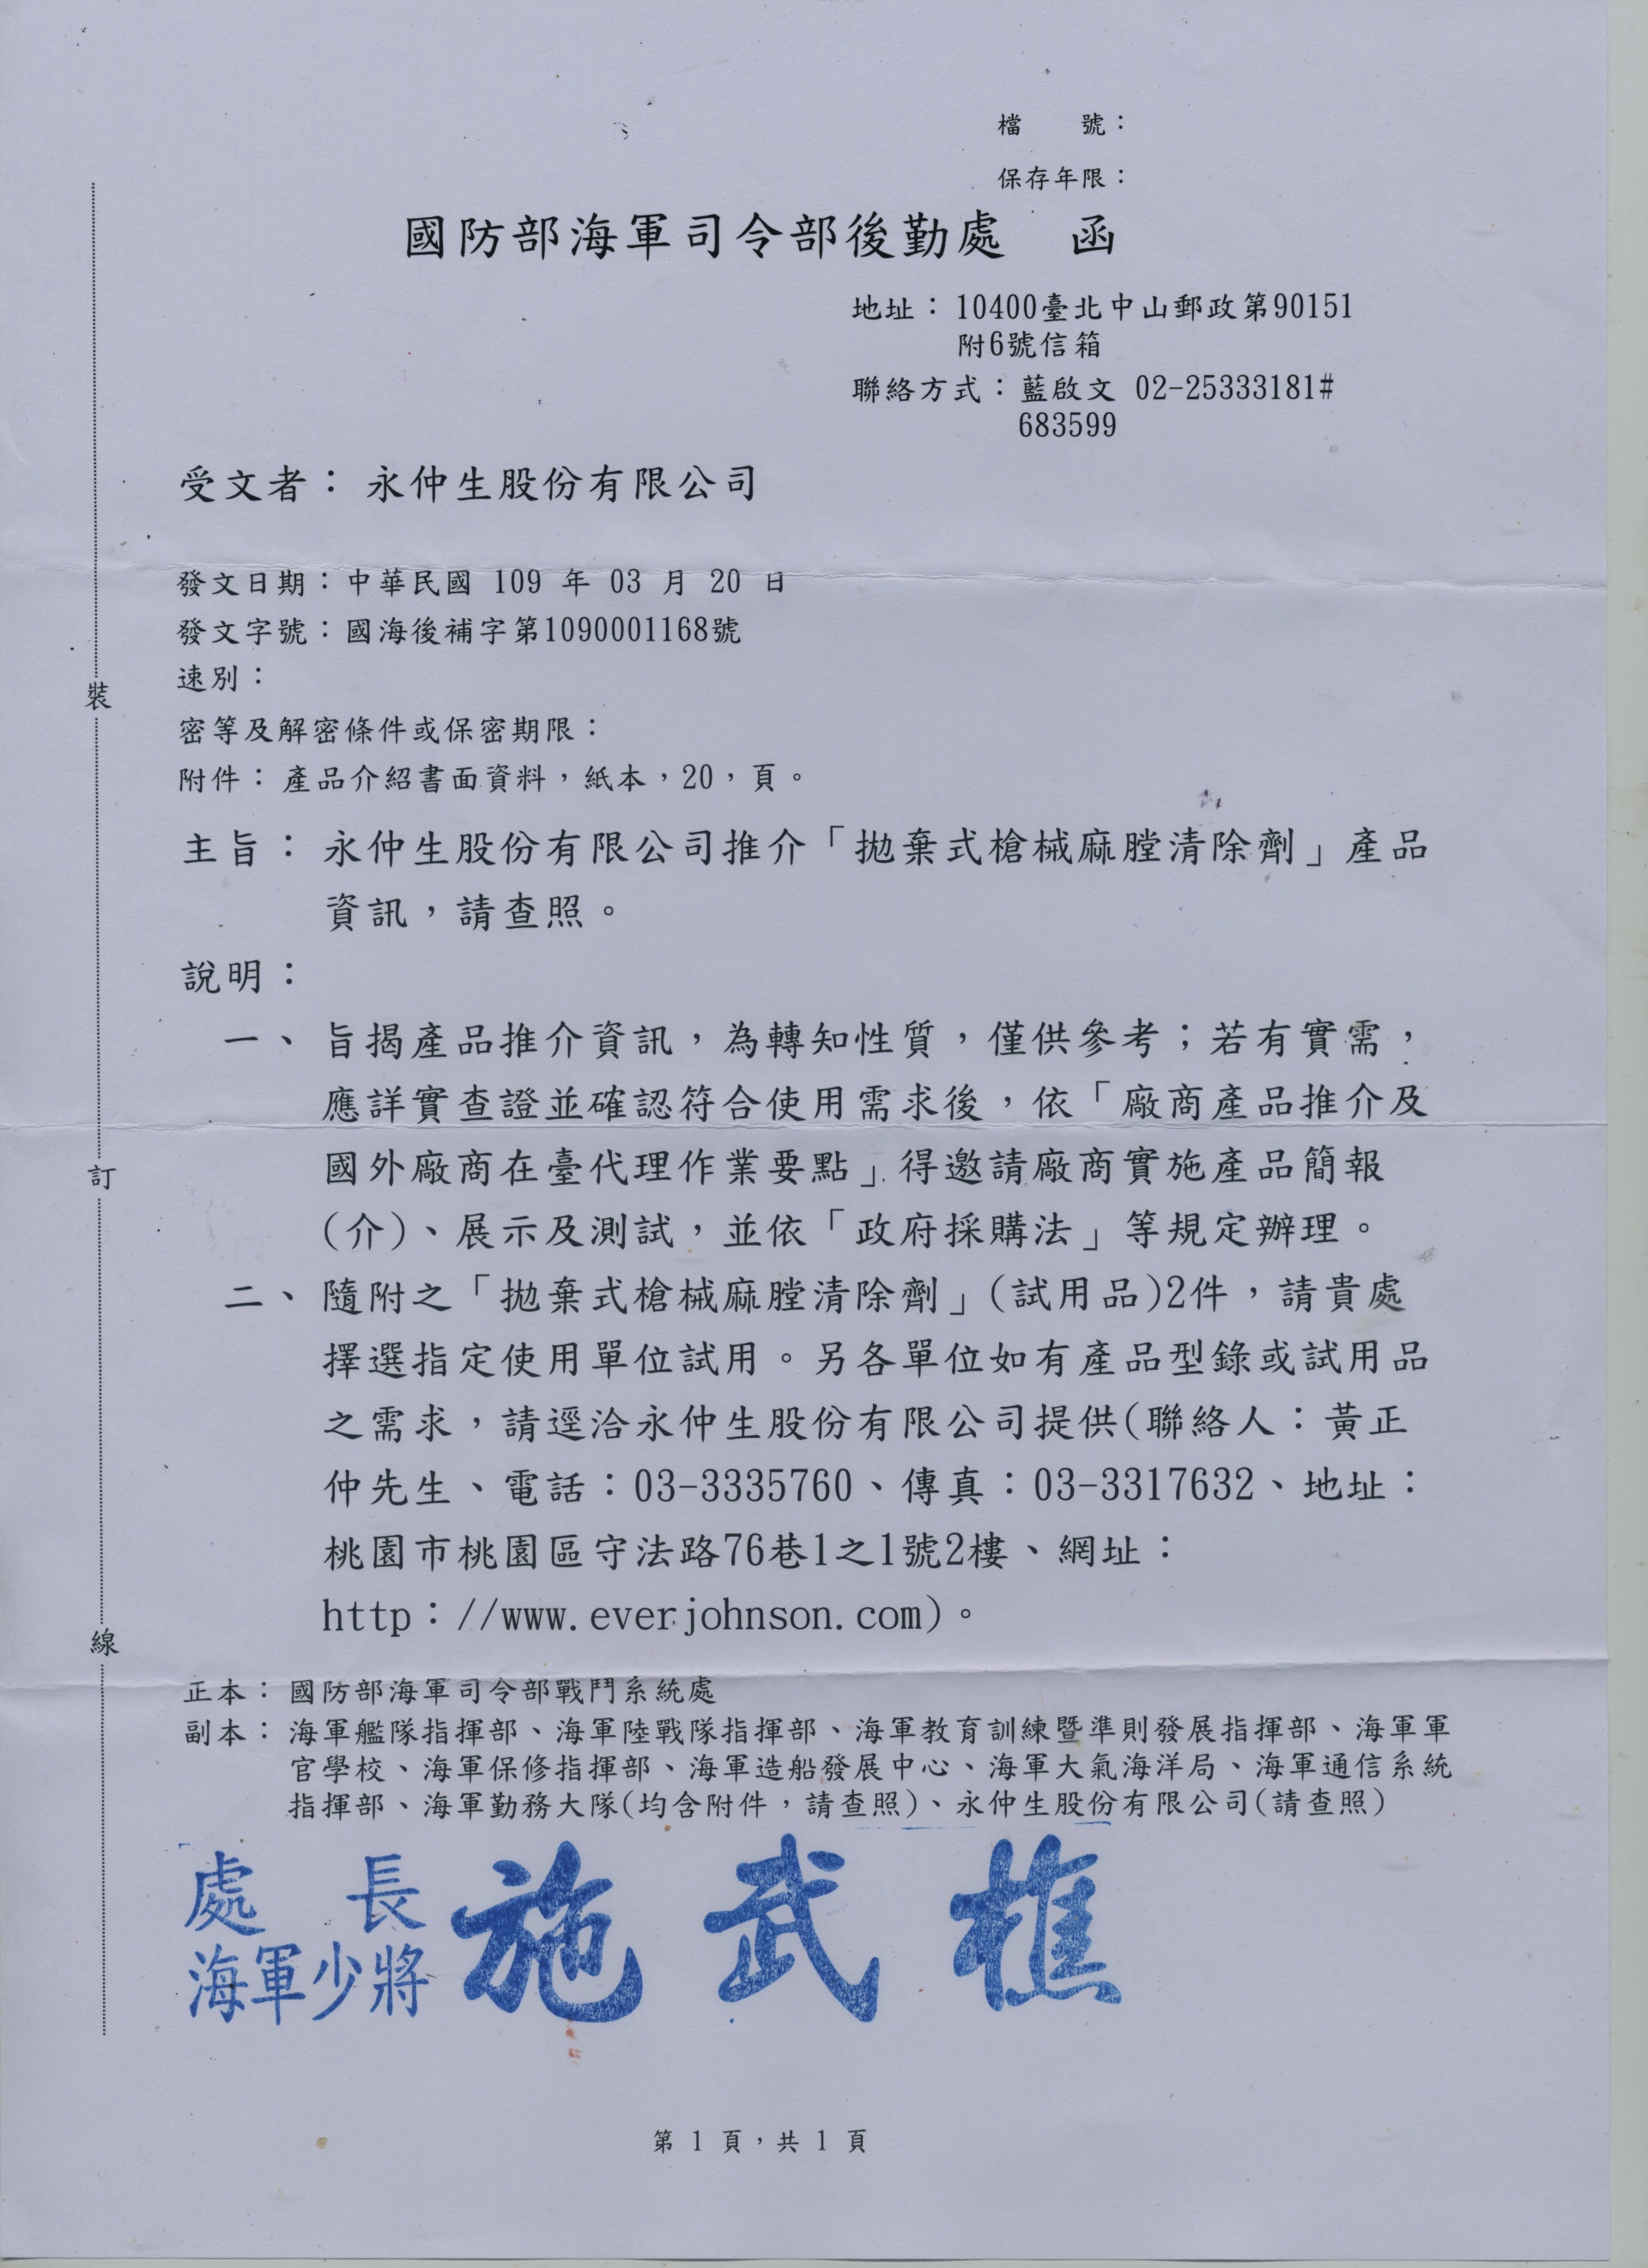 檔　　號：
保存年限：
國防部海軍司令部後勤處　函
地址：10400臺北中山郵政第90151
附6號信箱
聯絡方式：藍啟文 02-25333181#
683599
受文者：永仲生股份有限公司
發文日期：中華民國 109 年 03 月 20 日
發文字號：國海後補字第1090001168號
速別：
密等及解密條件或保密期限：
附件：產品介紹書面資料，紙本，20，頁。
主旨：永仲生股份有限公司推介「拋棄式槍械麻膛清除劑」產品
資訊，請查照。
說明：
一、旨揭產品推介資訊，為轉知性質，僅供參考；若有實需，
應詳實查證並確認符合使用需求後，依「廠商產品推介及
國外廠商在臺代理作業要點」得邀請廠商實施產品簡報
(介)、展示及測試，並依「政府採購法」等規定辦理。
二、隨附之「拋棄式槍械麻膛清除劑」(試用品)2件，請貴處
擇選指定使用單位試用。另各單位如有產品型錄或試用品
之需求，請逕洽永仲生股份有限公司提供(聯絡人：黃正
仲先生、電話：03-3335760、傳真：03-3317632、地址：
桃園市桃園區守法路76巷1之1號2樓、網址：
http：//www.everjohnson.com)。
正本：國防部海軍司令部戰鬥系統處
副本：海軍艦隊指揮部、海軍陸戰隊指揮部、海軍教育訓練暨準則發展指揮部、海軍軍
官學校、海軍保修指揮部、海軍造船發展中心、海軍大氣海洋局、海軍通信系統
指揮部、海軍勤務大隊(均含附件，請查照)、永仲生股份有限公司(請查照)
處　長
海軍少將 施武樵
第 1 頁，共 1 頁
裝
訂
線